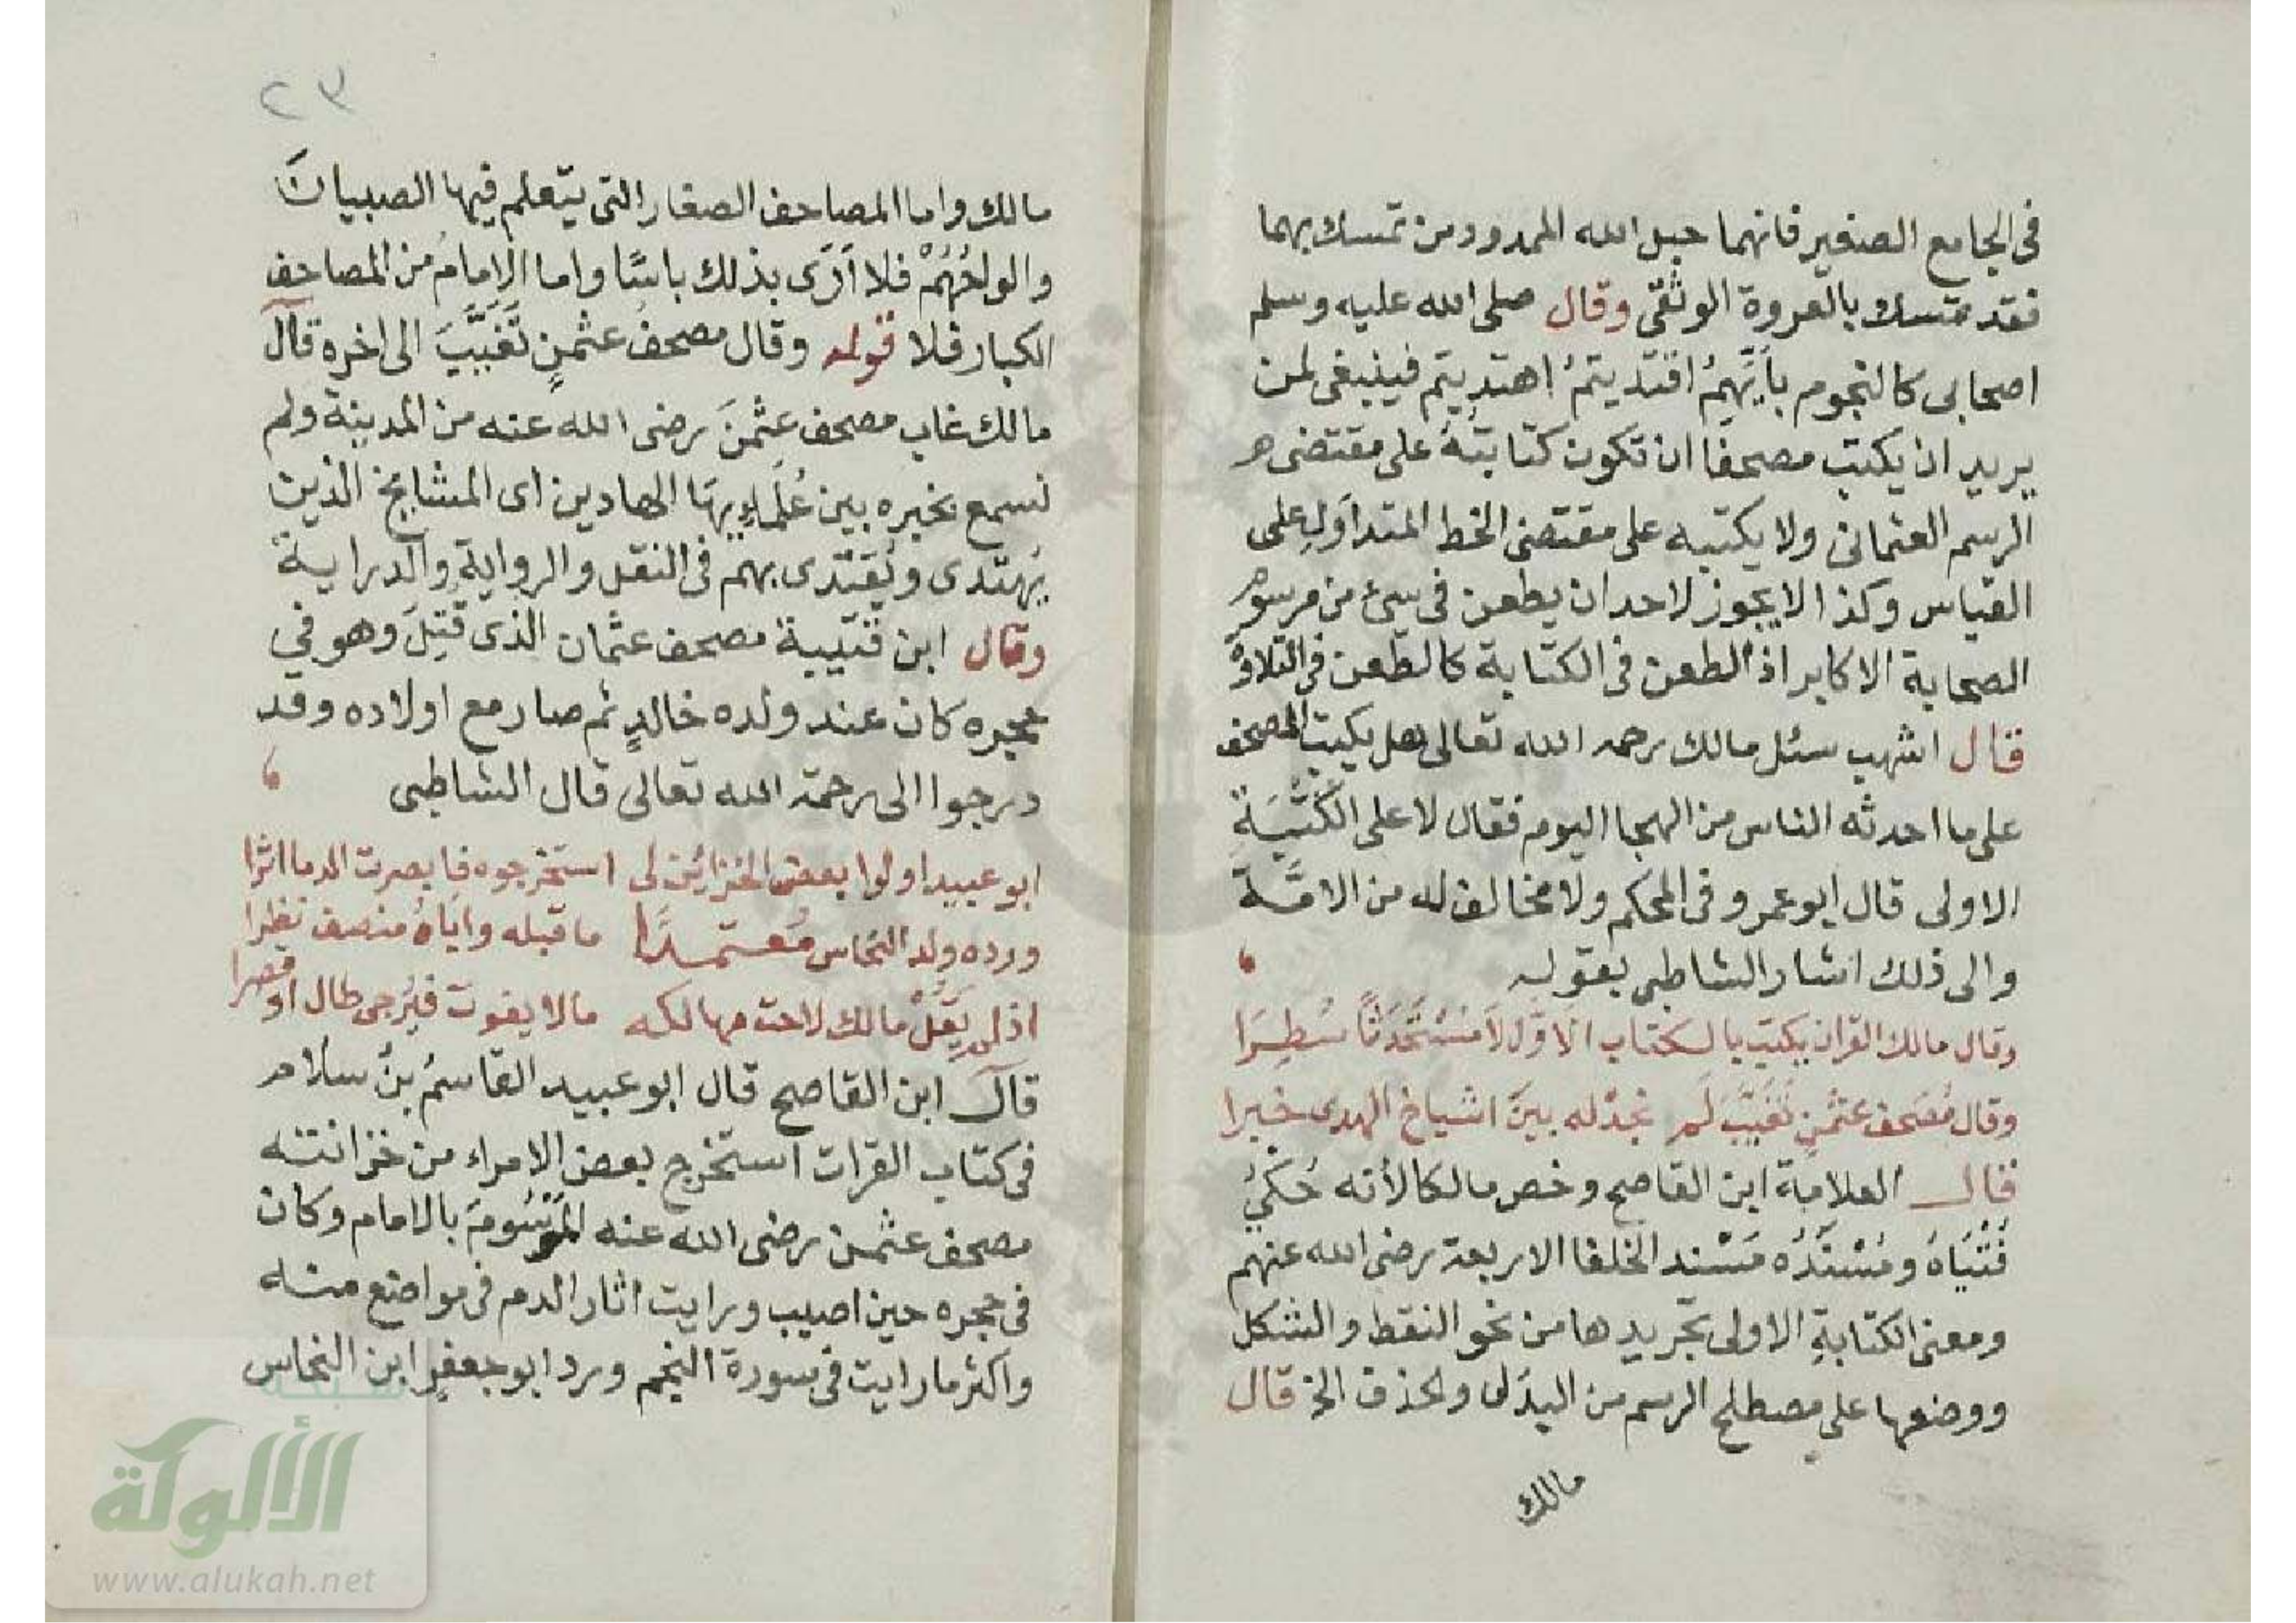 فى الجامع الصغير فانهما حبل الله الممدود من تمسك بهما
فقد متسك بالعروة الوثقى وقال صلى الله عليه وسلم
اصحابى كالنجوم بأيّهِمُ اقتديتمُ اهتديتم فينبغى لمن
يريد ان يكتب مصحفا ان تكون كتابتهُ على مقتضى
الرسم العثمانى ولا يكتبه على مقتضى الخط المتداوَلِ على
القياس وكذا لا يجوز لاحد ان يطعن فى شئ من مرسوم
الصحابة الاكابر اذ الطعن فى الكتابة كالطعن فى التلاوة
قال اشهب سئل مالك رحمه الله تعالى هل يكتب المصحف
على ما احدثه الناس من الهجا اليوم فقال لا على الكُتْبَةِ
الاولى قال ابو عمرو فى المحكم ولا مخالف له من الامّة
والى ذلك اشار الشاطبى بقوله
وقال مالك القران يكتب بالكتاب الاوّل لَا مُسْتَحْدَثًا سُطِرَا
وقال مُصحف عثمٰنٍ تَغَيَّبَ لَم نجدْ له بينَ اشياخ الهدى خبرا
قال العلامة ابن القاصح وخص مالكا لأنه حُكىَ
فُتْيَاهُ ومُسْنَدُه مَسْند الخلفا الاربعة رضى الله عنهم
ومعنى الكتابةِ الاولى تجريدها من نحو النقط والشكل
ووضعها على مصطلح الرسم من البدَل والحذف الخ قال
مالك
٢٣
مالك واما المصاحف الصغار التى يتعلم فيها الصبيانَ
والواحُهُمْ فلا اَرَى بذلك باسًا واما الامامُ من المصاحف
الكبار فلا قوله وقال مصحفُ عثمٰنٍ تَغَيَّبَ الى اخره قال
مالك غاب مصحف عثمٰنَ رضى الله عنه من المدينة ولم
نسمع بخبره بين عُلَماءِ بها الهادين اى المشايخ الذين
يُهتدى ويُقتدى بهم فى النقل والروايةِ والدراية
وقال ابن قتيبة مصحف عثمان الذى قُتِلَ وهو فى
حجره كان عند ولده خالدٍ ثم صار مع اولاده وقد
درجوا الى رحمة الله تعالى قال الشاطبى
ابو عبيد اولوا بعض الخزائن لى استخرجوه فابصرت الدما اثرا
ورده ولد النحاس مُعتمدًا ما قبله واباهُ منصف نظرا
اذ لم يَقُلْ مالك لاحت مهالكه مالا يفوت فيُرجى طال او قصرا
قال ابن القاصح قال ابو عبيد القاسمُ بنُ سلام
فى كتاب القرات استخرج بعض الامراء من خزانته
مصحف عثمٰن رضى الله عنه المَرْسُومَ بالامام وكان
فى حجره حين اصيب ورايت اثار الدم فى مواضع منه
واكثر ما رايت فى سورة النجم ورد ابو جعفرٍ ابن النحاس
شبكة
الألوكة
www.alukah.net